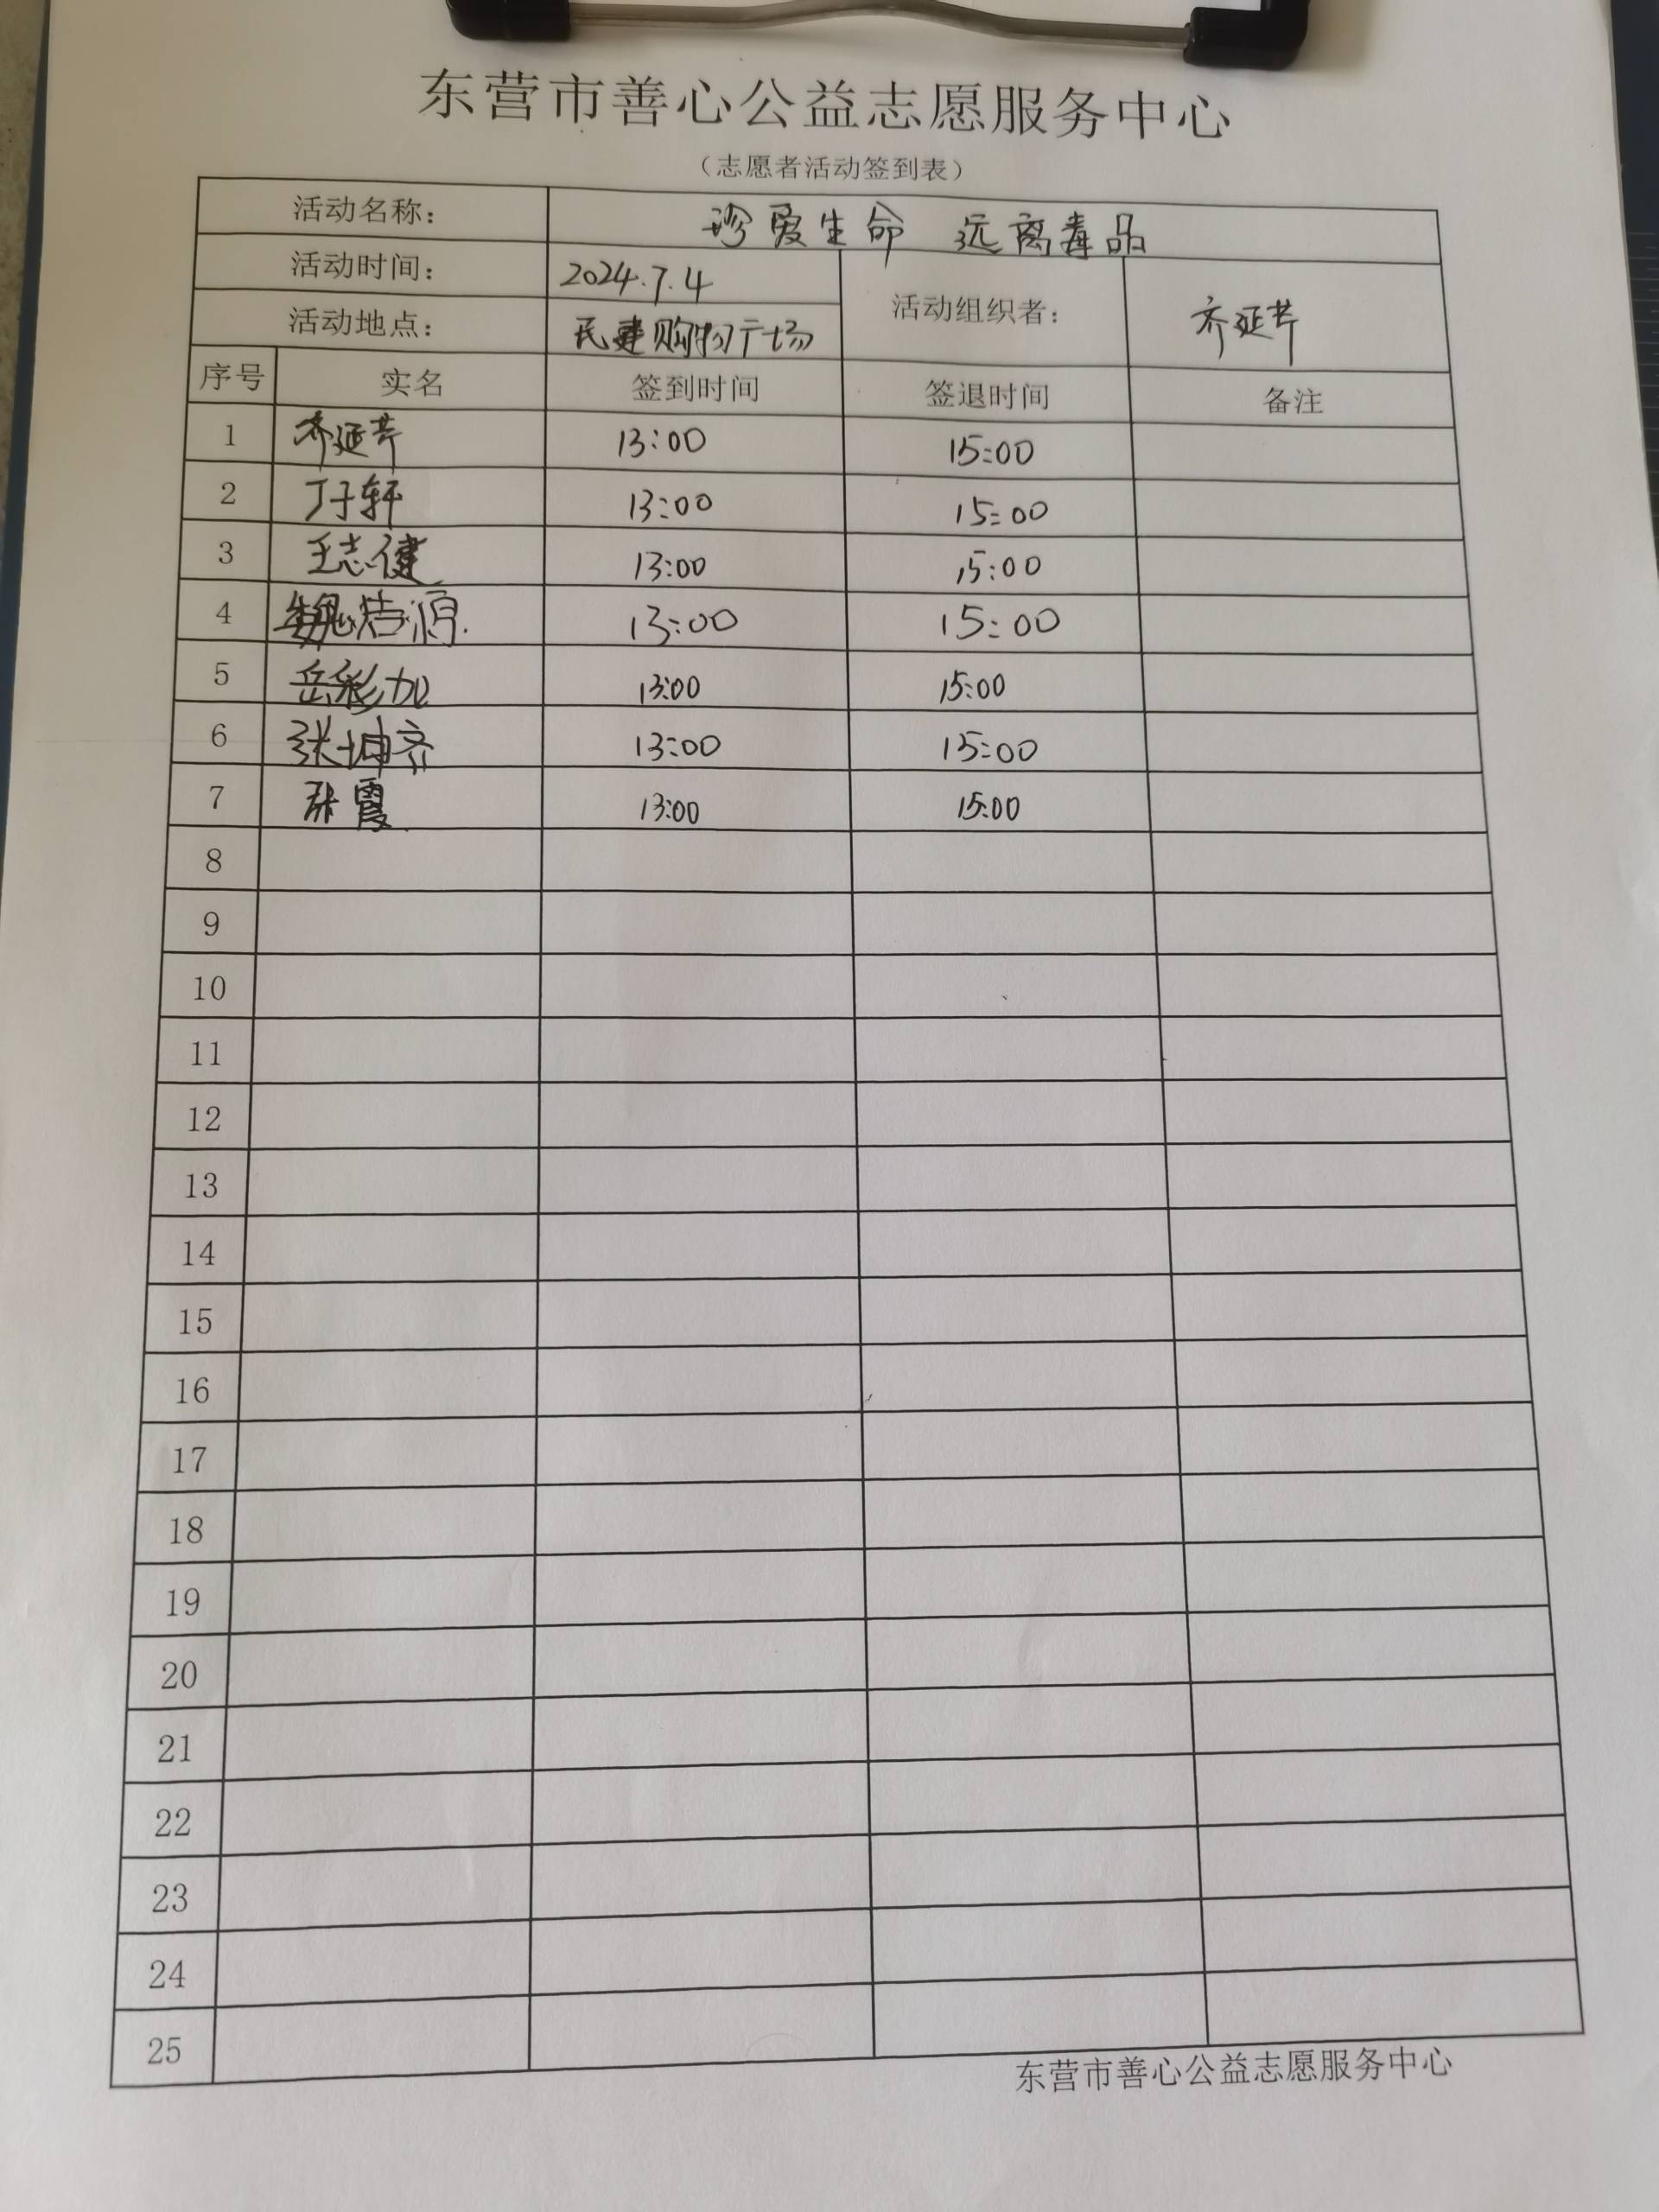 东营市善心公益志愿服务中心
（志愿者活动签到表）
活动名称： 珍爱生命 远离毒品
活动时间： 2024.7.4 活动组织者： 齐延芹
活动地点： 民建购物广场
序号 实名 签到时间 签退时间 备注
1 齐延芹 13:00 15:00
2 丁子轩 13:00 15:00
3 王志健 13:00 15:00
4 魏浩源 13:00 15:00
5 岳彩加 13:00 15:00
6 张坤齐 13:00 15:00
7 张霞 13:00 15:00
8
9
10
11
12
13
14
15
16
17
18
19
20
21
22
23
24
25
东营市善心公益志愿服务中心